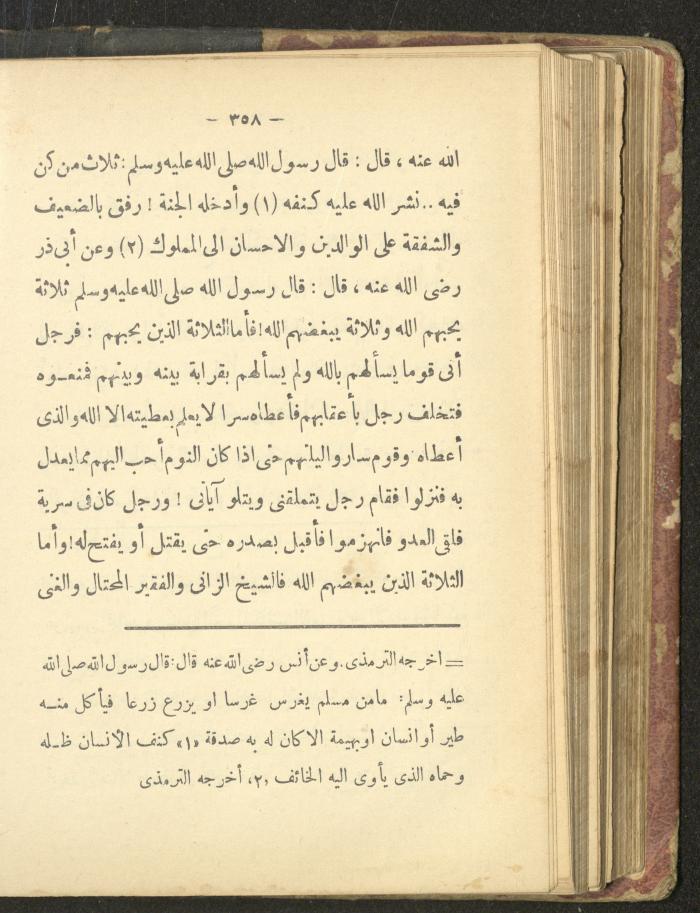 - ٣٥٨ -
الله عنه ، قال : قال رسول الله صلى الله عليه وسلم: ثلاث من كن
فيه .. نشر الله عليه كنفه (١) وأدخله الجنة ! رفق بالضعيف
والشفقة على الوالدين والاحسان الى المملوك (٢) وعن أبى ذر
رضى الله عنه ، قال : قال رسول الله صلى الله عليه وسلم ثلاثة
يحبهم الله وثلاثة يبغضهم الله! فأما الثلاثة الذين يحبهم : فرجل
أتى قوما يسألهم بالله ولم يسألهم بقرابة بينه وبينهم فمنعوه
فتخلف رجل بأعقابهم فأعطاه سرا لا يعلم بعطيته الا الله والذى
أعطاه وقوم ساروا ليلتهم حتى اذا كان النوم أحب اليهم مما يعدل
به فنزلوا فقام رجل يتملقنى ويتلو آياتى ! ورجل كان فى سرية
فلقى العدو فانهزموا فأقبل بصدره حتى يقتل أو يفتح له! وأما
الثلاثة الذين يبغضهم الله فالشيخ الزانى والفقير المحتال والغنى
= اخرجه الترمذى. وعن أنس رضى الله عنه قال: قال رسول الله صلى الله
عليه وسلم: مامن مسلم يغرس غرسا او يزرع زرعا فيأكل منه
طير أو انسان او بهيمة الا كان له به صدقة «١» كنف الانسان ظله
وحماه الذى يأوى اليه الخائف «٢» أخرجه الترمذى